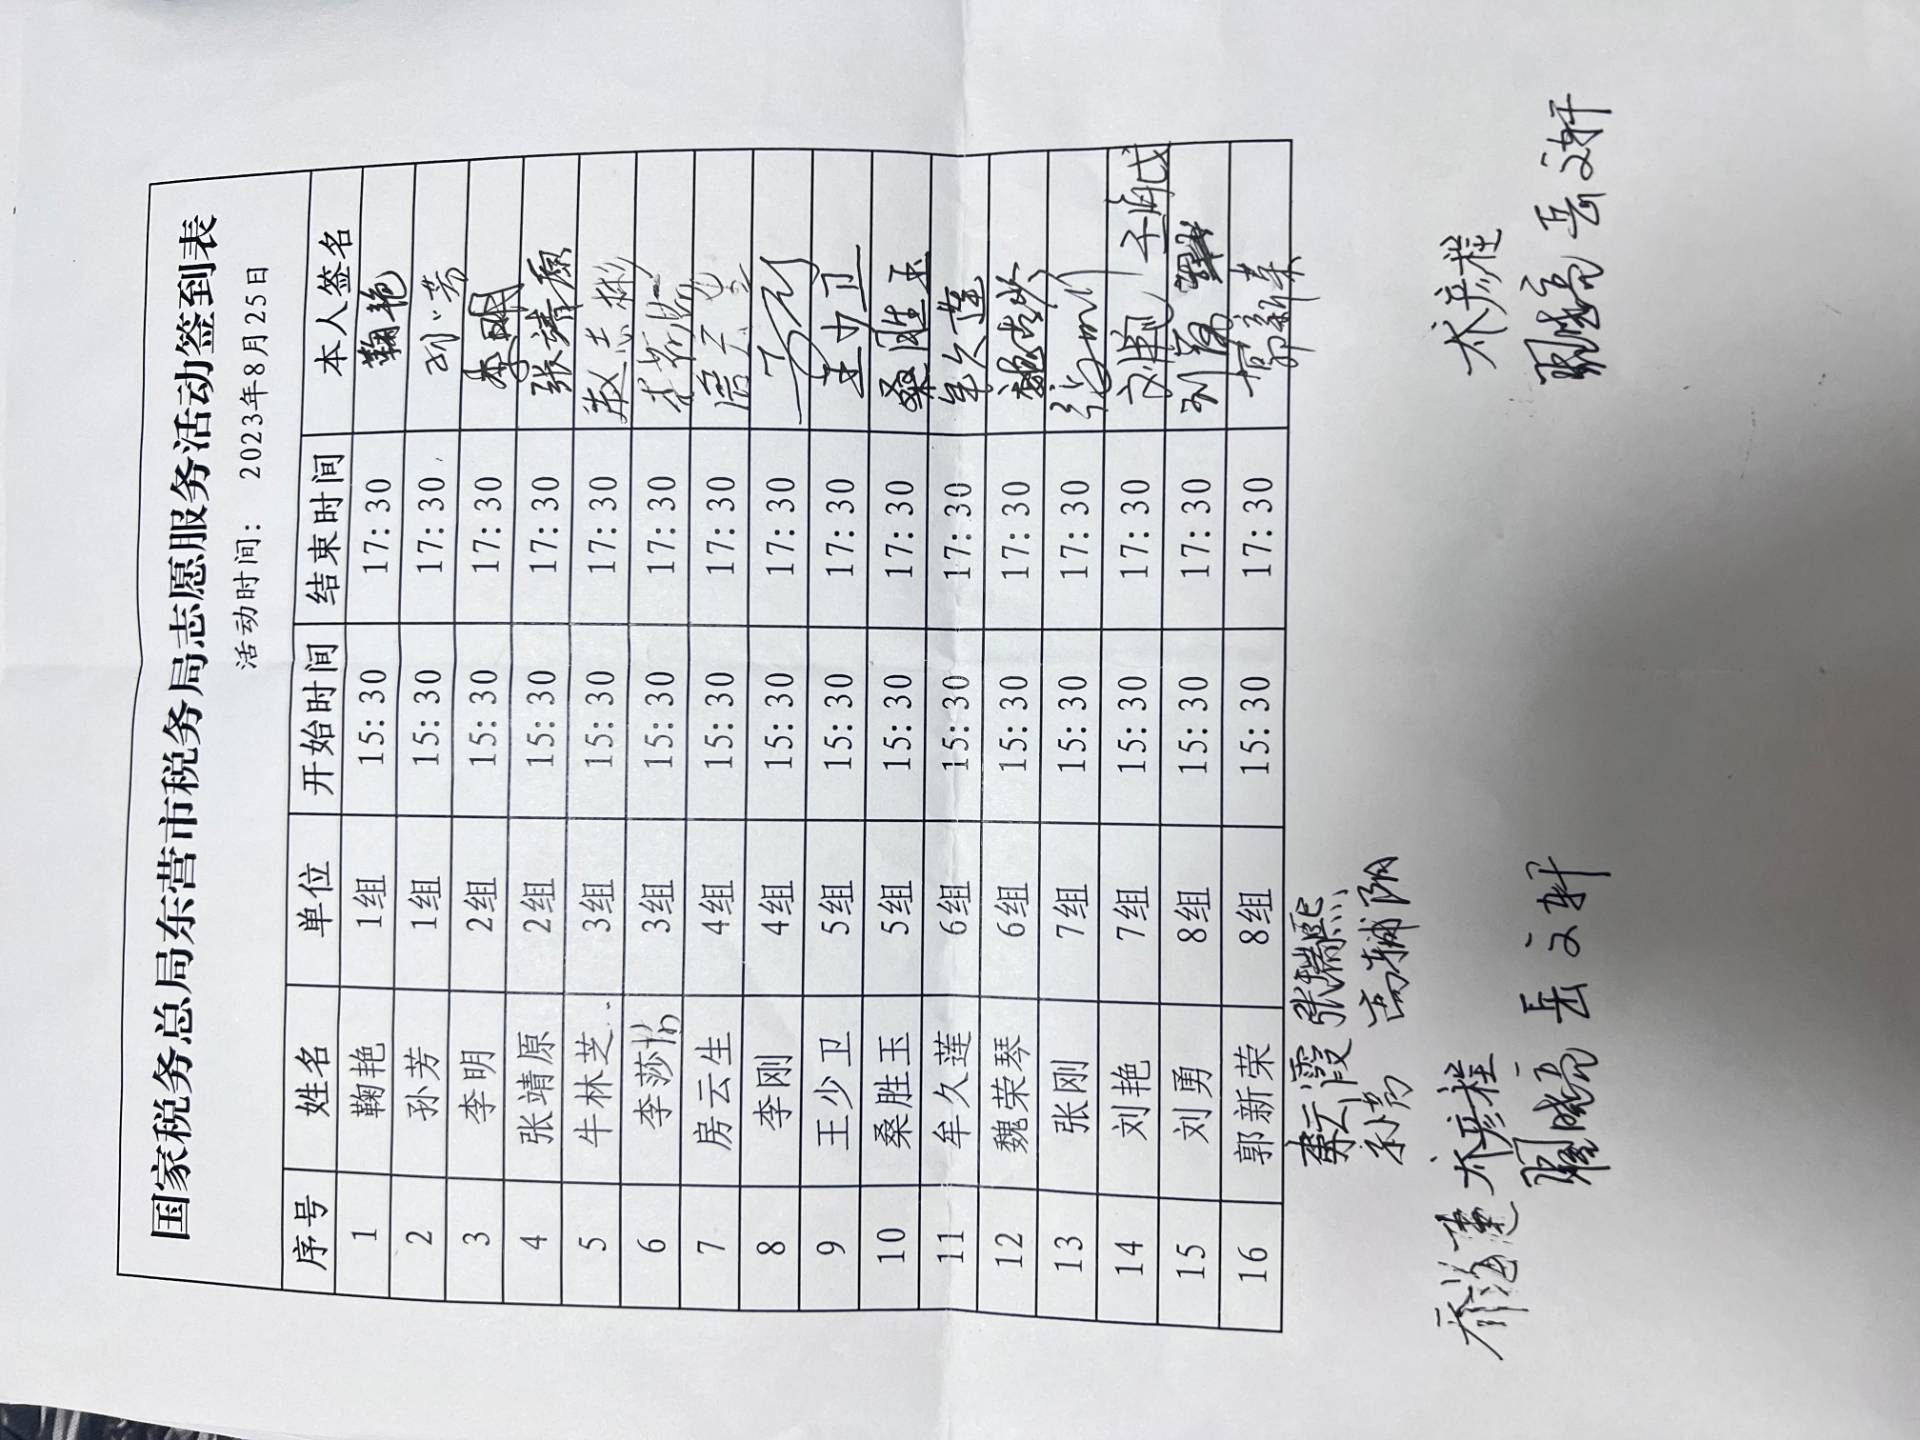 国家税务总局东营市税务局志愿服务活动签到表
活动时间： 2023年8月25日
序号 姓名 单位 开始时间 结束时间 本人签名
1 鞠艳 1组 15:30 17:30 鞠艳
2 孙芳 1组 15:30 17:30
3 李明 2组 15:30 17:30 李明
4 张靖原 2组 15:30 17:30 张靖原
5 牛林芝 3组 15:30 17:30
6 李莎 3组 15:30 17:30
7 房云生 4组 15:30 17:30
8 李刚 4组 15:30 17:30
9 王少卫 5组 15:30 17:30 王少卫
10 桑胜玉 5组 15:30 17:30 桑胜玉
11 牟久莲 6组 15:30 17:30 牟久莲
12 魏荣琴 6组 15:30 17:30
13 张刚 7组 15:30 17:30
14 刘艳 7组 15:30 17:30
15 刘勇 8组 15:30 17:30
16 郭新荣 8组 15:30 17:30 郭新荣
云霞 张瑞熙
孙芳
岳文轩
岳文轩